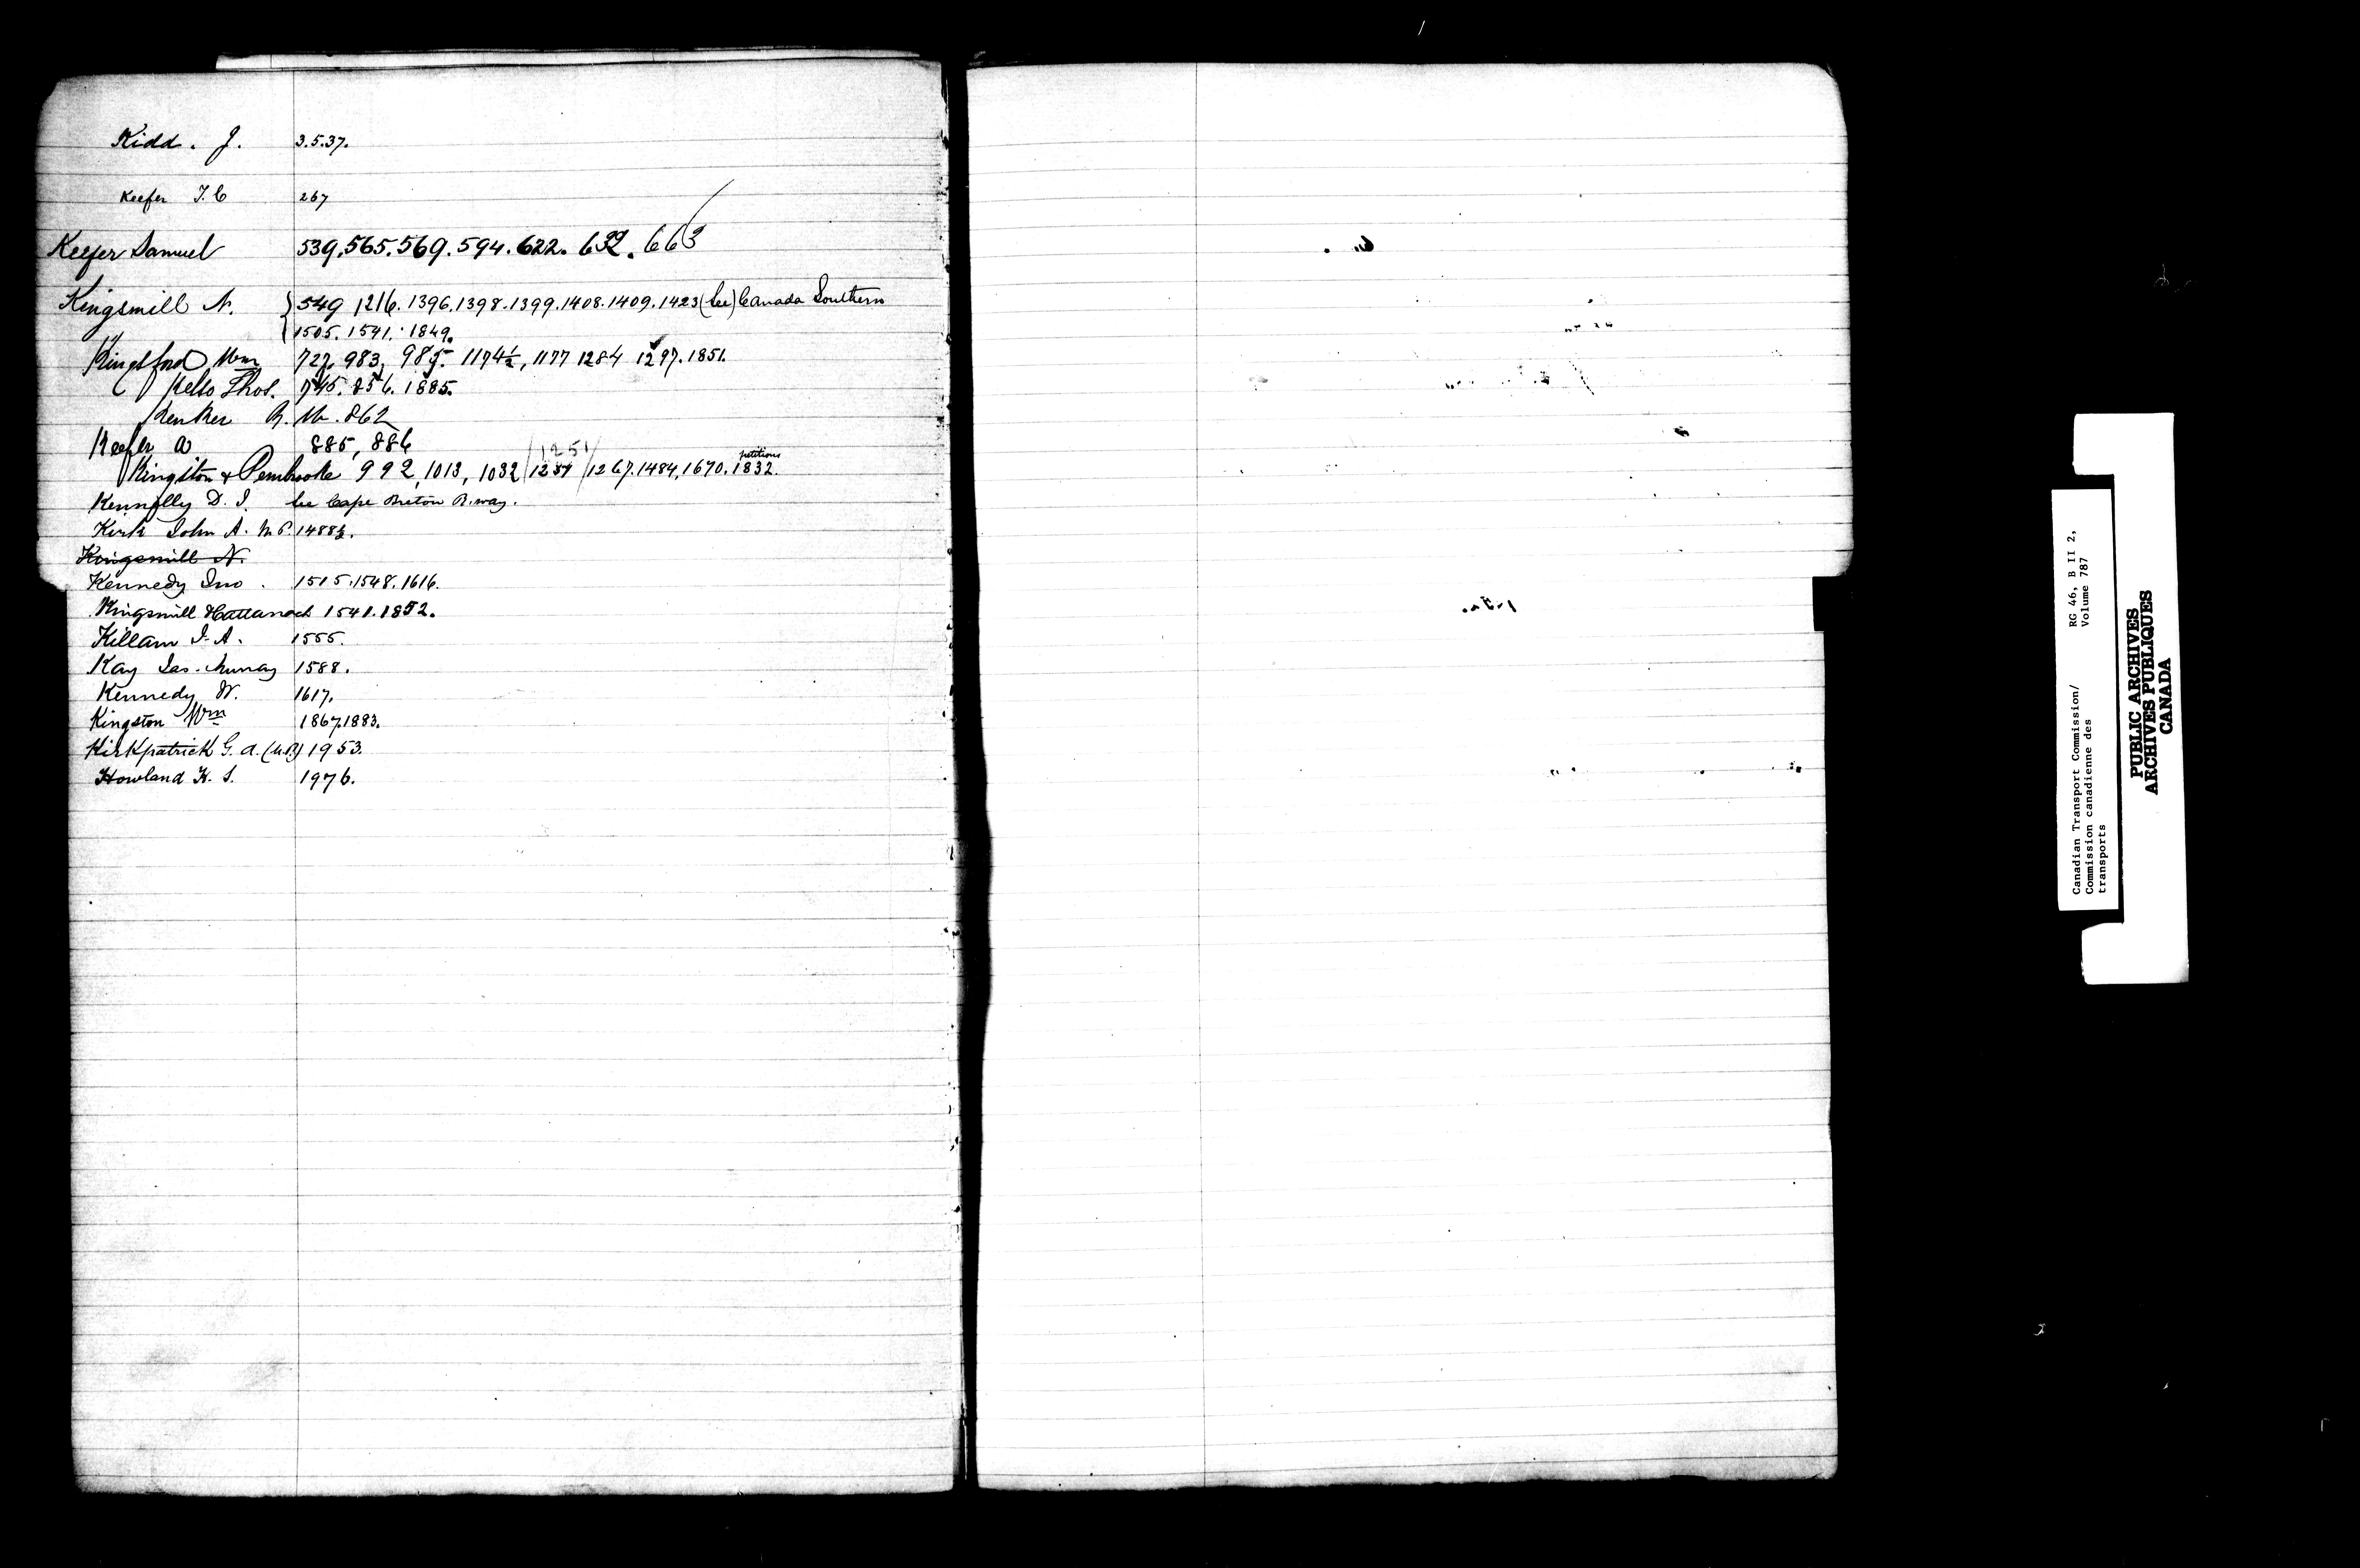 Kidd. J. 3.5.37.
Keefer T. C 267
Keefer Samuel 539.565.569.594.622. 632. 663
Kingsmill N. 549 1216.1396.1398.1399.1408.1409.1423 (See) Canada Southern
1505.1541.1849.
Kingsford Wm 727, 983, 985. 1174½, 1177 1284 1297.1851.
Kelso Thos. 745. 856. 1885.
R. W. 862
Keefer A 885, 886
1251
petitions
Kingston & Pembroke 992, 1013, 1032 / 1251 / 1267.1484, 1670. 1832.
Kennelly D. J. See Cape Breton R.way.
Kirk John A. M.P. 1488½.
Kingsmill N.
Kennedy Jno. 1515.1548.1616.
Kingsmill & Cattanach 1541.1852.
Killam I. A. 1555.
Kay Jas. Murray 1588.
Kennedy W. 1617.
Kingston Wm 1867.1883.
Kirkpatrick G. A. (M.P) 1953.
Howland H. S. 1976.
Canadian Transport Commission/ RG 46, B II 2,
Commission canadienne des Volume 787
transports
PUBLIC ARCHIVES
ARCHIVES PUBLIQUES
CANADA